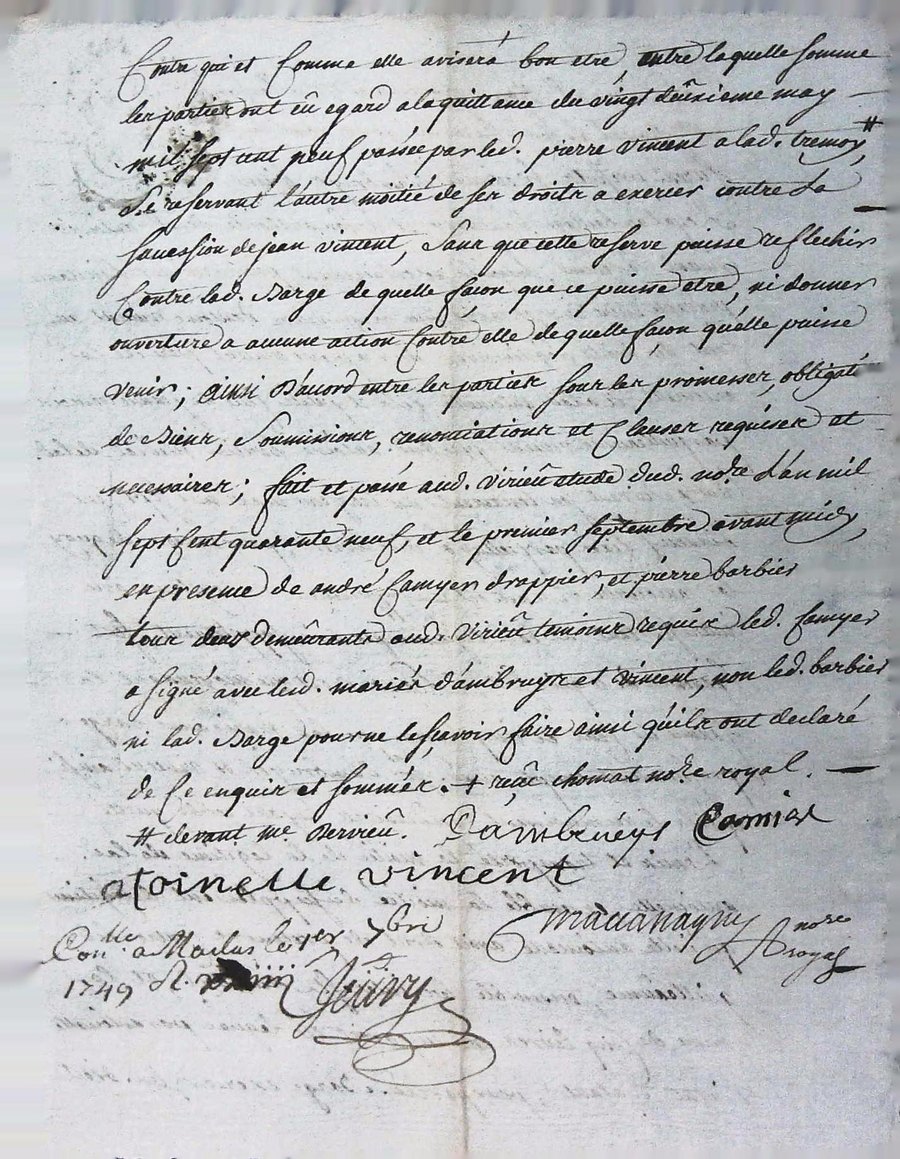 Contre qui et Comme elle avisera bon etre, entre laquelle somme
les parties ont eû egard a la quittance du vingt deûxieme may
mil sept cent neuf passée par led. pierre vincent a lad. tremoy #
Se reservant l'autre moitié de ses droits a exercer contre La
sucession de jean vincent, Sans que cette reserve puisse reflechir
Contre lad. Barge de quelle façon que ce puisse etre, ni donner
ouverture a aucune action Contre elle de quelle façon qu'elle puisse
venir; ainsi D'acord entre les parties sous les promesses, obligat.
de Biens, Soumissions, renonciations et Clauses requises et
necessaires; fait et passé aud. virieû etude dud. no.re L'an mil
sept Cent quarante neuf, et le premier septembre avant midy,
en presence de andré Camyer drappier, et pierre barbier
tous deux demeûrants aud. virieû temoins requis led. Camyer
a signé avec lesd. mariés d'ambruys et vincent, non led. barbier
ni lad. Barge pour ne le sçavoir faire ainsi qu'ils ont declaré
de Ce enquis et sommés. + reçûe chomat no.re royal.
# devant me Dervieû. Dambrueys Camier
atoinelle vincent
no.re
royal
Con.lle a Maclas le 1er 7bre
1749 R.